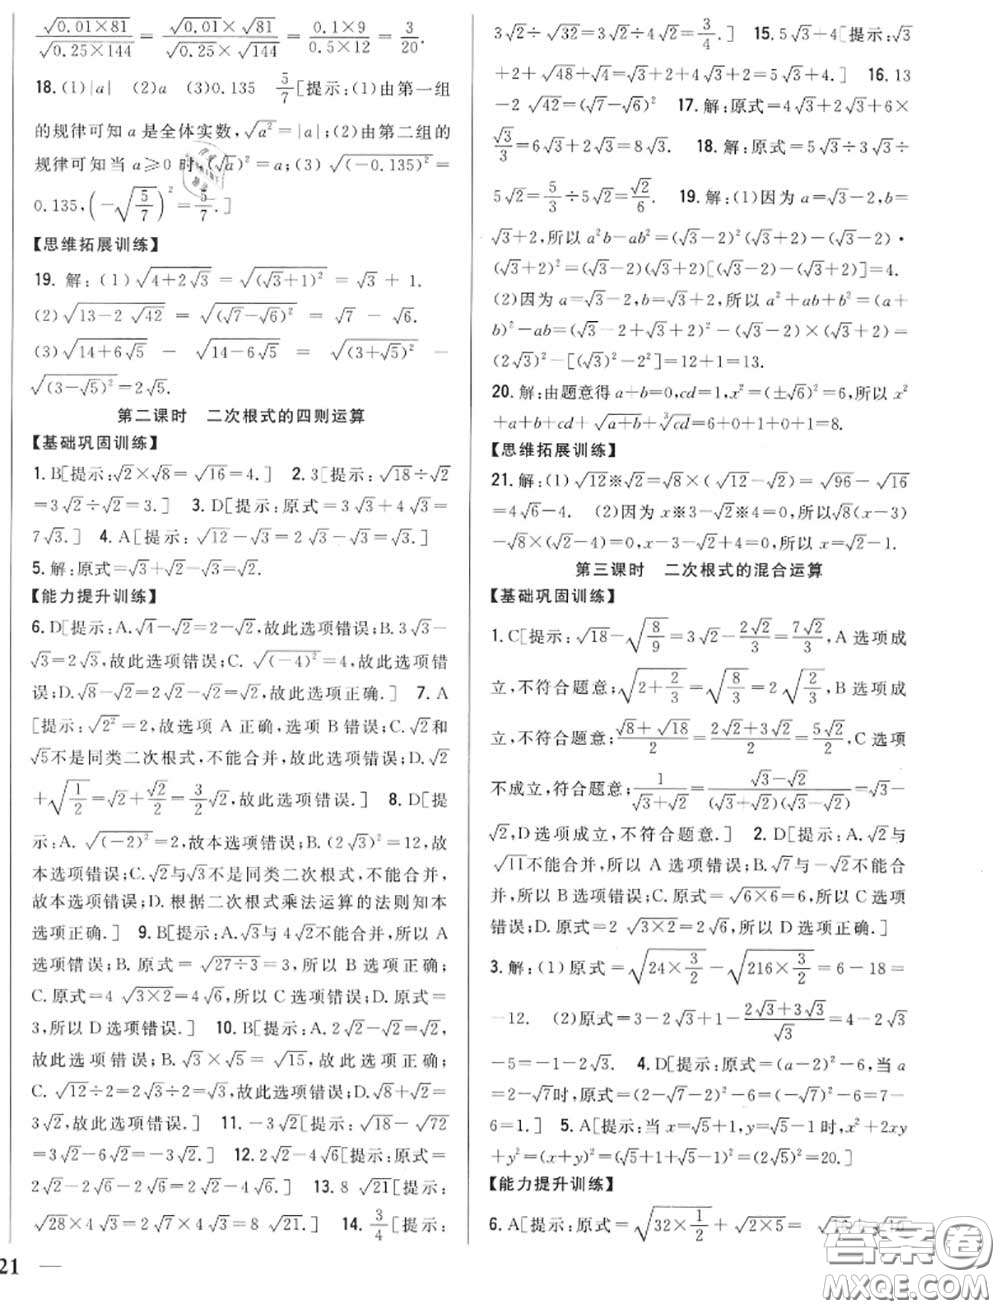 √(0.01×81)/√(0.25×144)=(√0.01×√81)/(√0.25×√144)=(0.1×9)/(0.5×12)=3/20.
18.(1)|a| (2)a (3)0.135 5/7[提示:(1)由第一组
的规律可知 a 是全体实数,√(a²)=|a|;(2)由第二组的
规律可知当 a⩾0 时,(√a)²=a;(3) √((-0.135)²)=
0.135,(-√(5/7))²=5/7.]
【思维拓展训练】
19. 解:(1)√(4+2√3)=√((√3+1)²)=√3+1.
(2)√(13-2√42)=√((√7-√6)²)=√7-√6.
(3)√(14+6√5)-√(14-6√5)=√((3+√5)²)-
√((3-√5)²)=2√5.
第二课时 二次根式的四则运算
【基础巩固训练】
1. B[提示:√2×√8=√16=4.] 2. 3[提示:√18÷√2
=3√2÷√2=3.] 3. D[提示:原式=3√3+4√3=
7√3.] 4. A[提示:√12-√3=2√3-√3=√3.]
5. 解:原式=√3+√2-√3=√2.
【能力提升训练】
6. D[提示:A.√4-√2=2-√2,故此选项错误;B. 3√3-
√3=2√3,故此选项错误;C. √((-4)²)=4,故此选项错
误;D.√8-√2=2√2-√2=√2,故此选项正确.] 7. A
[提示:√(2²)=2,故选项 A 正确,选项 B 错误;C.√2和
√5不是同类二次根式,不能合并,故此选项错误;D.√2
+√(1/2)=√2+√2/2=3/2√2,故此选项错误.] 8. D[提
示:A. √((-2)²)=2,故本选项错误;B. (2√3)²=12,故本
选项错误;C.√2与√3不是同类二次根式,不能合并,
故本选项错误;D. 根据二次根式乘法运算的法则知本
选项正确.] 9. B[提示:A.√3与 4√2不能合并,所以 A
选项错误;B. 原式=√(27÷3)=3,所以 B 选项正确;
C. 原式=4√(3×2)=4√6,所以 C 选项错误;D. 原式=
3,所以 D 选项错误.] 10. B[提示:A. 2√2-√2=√2,
故此选项错误;B. √3×√5=√15,故此选项正确;
C. √12÷2=2√3÷2=√3,故此选项错误;D.√8+√2=
3√2,故此选项错误.] 11. -3√2[提示:√18-√72
=3√2-6√2=-3√2.] 12. 2√2-4√6[提示:原式=
2√2-2√6-2√6=2√2-4√6.] 13. 8√21[提示:
√28×4√3=2√7×4√3=8√21.] 14. 3/4[提示:
3√2÷√32=3√2÷4√2=3/4.] 15. 5√3+4[提示:√3
+2+√48+√4=√3+2+4√3+2=5√3+4.] 16. 13
-2√42=(√7-√6)² 17. 解:原式=4√3+2√3+6×
√3/3=6√3+2√3=8√3. 18. 解:原式=5√3÷3√3÷
5√2=5/3÷5√2=√2/6. 19. 解:(1)因为 a=√3-2,b=
√3+2,所以 a²b-ab²=(√3-2)²(√3+2)-(√3-2)·
(√3+2)²=(√3-2)(√3+2)[(√3-2)-(√3+2)]=4.
(2)因为 a=√3-2,b=√3+2,所以 a²+ab+b²=(a+
b)²-ab=(√3-2+√3+2)²-(√3-2)×(√3+2)=
(2√3)²-[(√3)²-2²]=12+1=13.
20. 解:由题意得 a+b=0,cd=1,x²=(±√6)²=6,所以 x²
+a+b+cd+√(a+b)+∛cd=6+0+1+0+1=8.
【思维拓展训练】
21. 解:(1)√12※√2=√8×(√12-√2)=√96-√16
=4√6-4. (2)因为 x※3-√2※4=0,所以√8(x-3)
-√8×(√2-4)=0,所以 x=√2-1.
第三课时 二次根式的混合运算
【基础巩固训练】
1. C[提示:√18-√(8/9)=3√2-2√2/3=7√2/3,A 选项成
立,不符合题意;√(2+2/3)=√(8/3)=2√(2/3),B 选项成
立,不符合题意;(√8+√18)/2=(2√2+3√2)/2=5√2/2,C 选项
不成立,符合题意;1/(√3+√2)=(√3-√2)/((√3+√2)(√3-√2))=√3-
√2,D 选项成立,不符合题意.] 2. D[提示:A.√2与
√11不能合并,所以 A 选项错误;B.√7与-√不能合
并,所以 B 选项错误;C. 原式=√(6×6)=6,所以 C 选项
错误;D. 原式=2√(3×2)=2√6,所以 D 选项正确.]
3. 解:(1)原式=√(24×3/2)-√(216×3/2)=6-18=
-12. (2)原式=4-2√3+1-(2√3+3√3)/√3=4-2√3
-5=-1-2√3. 4. D[提示:原式=(a-2)²-6,当 a
=2-√7时,原式=(2-√7-2)²-6=(-√7)²-6=7-
6=1.] 5. A[提示:当 x=√5+1,y=√5-1时,x²+2xy
+y²=(x+y)²=(√5+1+√5-1)²=(2√5)²=20.]
【能力提升训练】
6. A[提示:原式=√(32×1/2)+√(2×5)=
21 —
答案圈
MXQE.COM